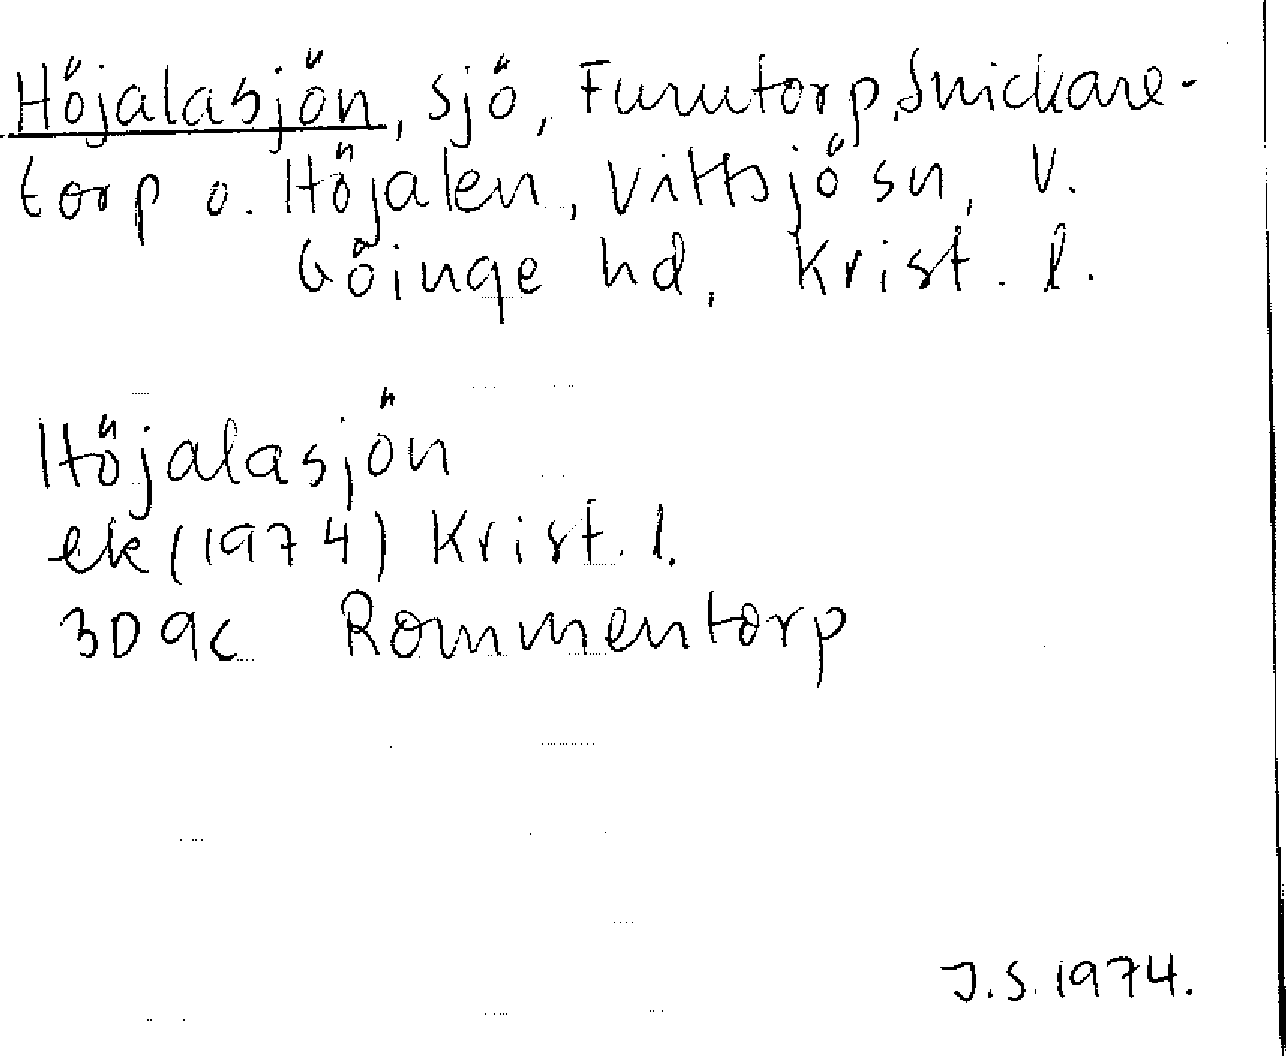 Höjalasjön, sjö, Furutorp, Snickare-
torp o. Höjalen, Vittsjö sn, V.
Göinge hd, Krist. l.
Höjalasjön
ek (1974) Krist. l.
3D 9c Rommentorp
J.S. 1974.